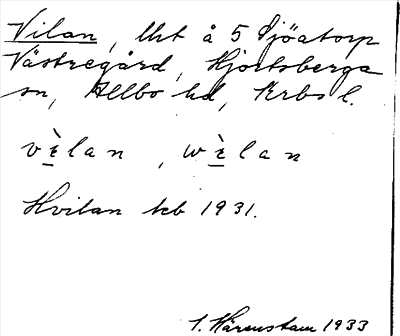 Vilan, lht å 5 Sjöatorp
Västregård, Hjortsberga
sn, Allbo hd, Krbs l.
vὲlan, wὲlan
Hvilan kb 1931.
S. Härenstam 1933